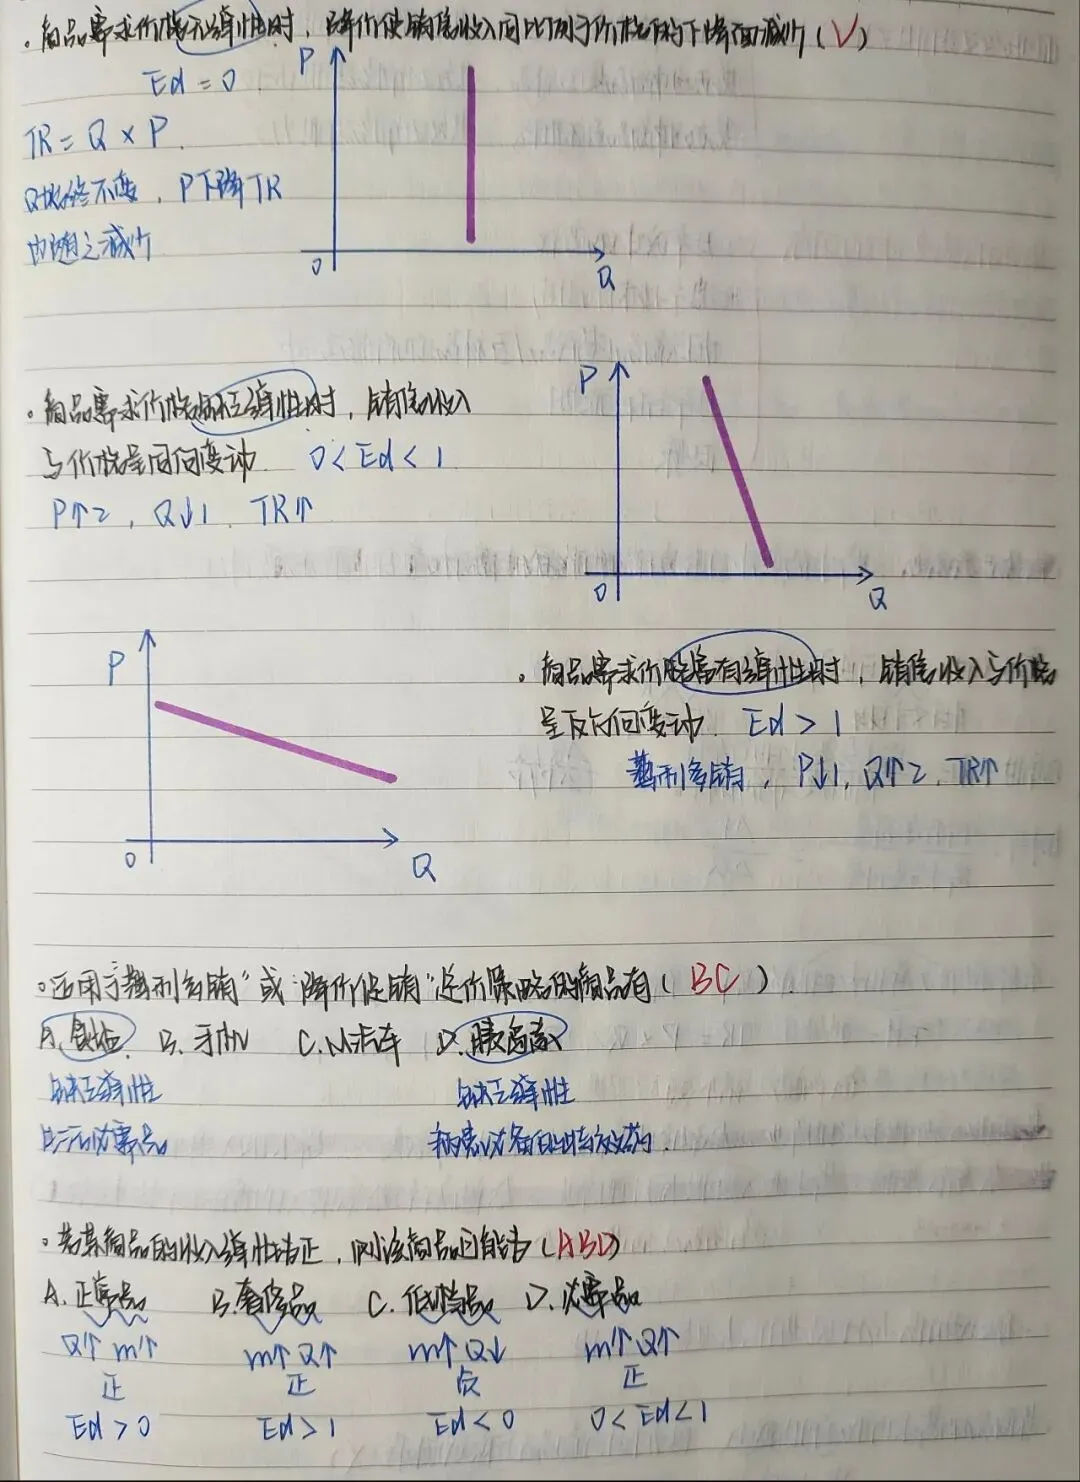 。商品需求价格无弹性时，降价使销售收入同比例于价格的下降而减少（√）
Ed = 0
TR = Q × P.
Q始终不变，P下降TR
也随之减少
P
0
Q
。商品需求价格缺乏弹性时，销售收入
与价格呈同向变动 0 < Ed < 1
P↑2，Q↓1 TR↑
P
0
Q
P
0
Q
。商品需求价格富有弹性时，销售收入与价格
呈反方向变动 Ed > 1
薄利多销，P↓1，Q↑2，TR↑
。适用于"薄利多销"或"降价促销"定价策略的商品有（BC）
A. 食盐 B. 手机 C. 小汽车 D. 胰岛素
缺乏弹性 缺乏弹性
生活必需品
。若某商品的收入弹性为正，则该商品可能为（ABD）
A. 正常品 B. 奢侈品 C. 低档品 D. 必需品
Q↑ m↑ m↑ Q↑ m↑ Q↓ m↑ Q↑
正 正 负 正
Ed > 0 Ed > 1 Ed < 0 0 < Ed < 1